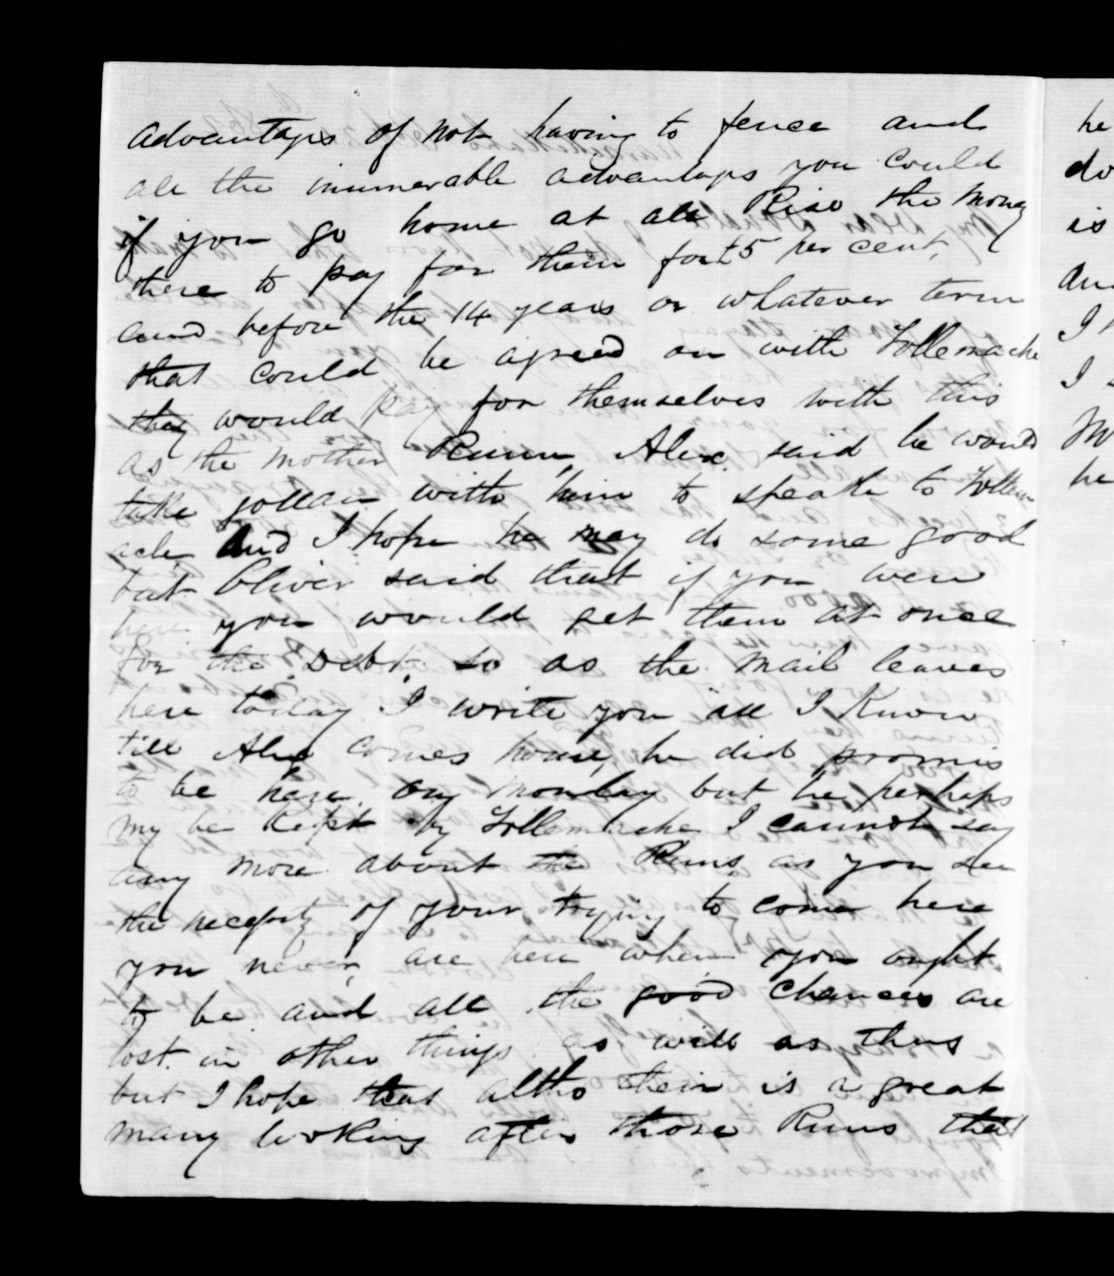 advantages of not having to fence and
all the inumerable advantages you could
if you go home at all Rise the Money
there to pay for them for 5 per cent,
and before the 14 years or whatever term
that could be agreed on with Tollemache
they would pay for themselves with this
as the mother Runn, Alex said he would
take with him to speak to Tollem
ache And I hope he may do some good
but Oliver said that if you were
here you would get them at once
for the Debt so as the mail leaves
here today I write you all I Know
till Alex comes home, he did promis
to be here on monday but he perhaps
my be Kept by Tollemache I cannot say
any more about the Runs as you see
the necessity of your trying to come here
you never are here when you ought
to be and all the good chances are
lost in other things as well as this
but I hope that altho their is a great
many looking after those Runs that
he
do
is
an
I
I
M
he